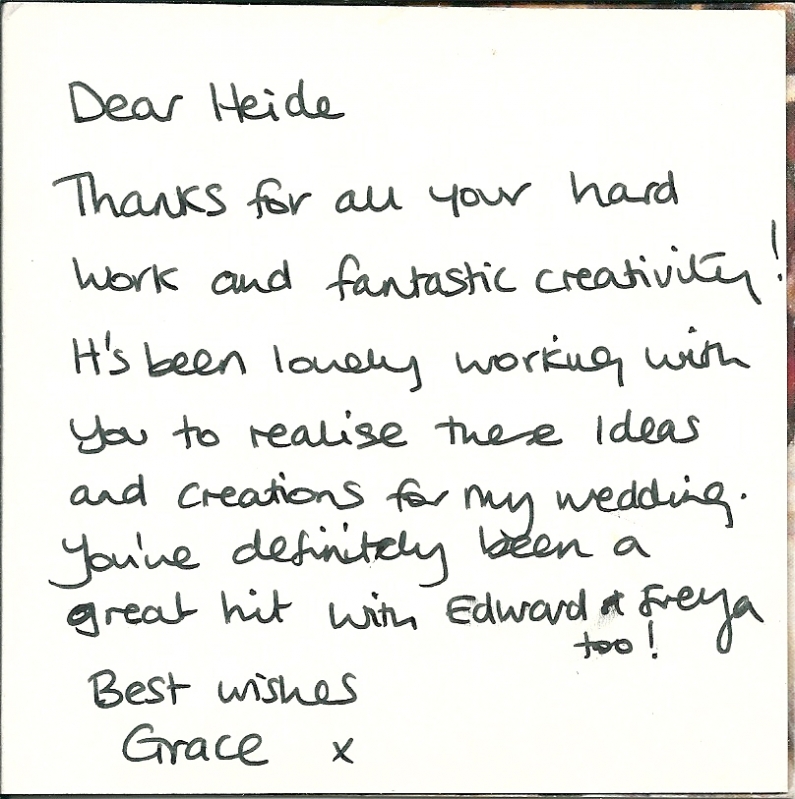 Dear Heide
Thanks for all your hard
work and fantastic creativity!
It's been lovely working with
you to realise these Ideas
and creations for my wedding.
You've definitely been a
great hit with Edward & Freya
too!
Best wishes
Grace x